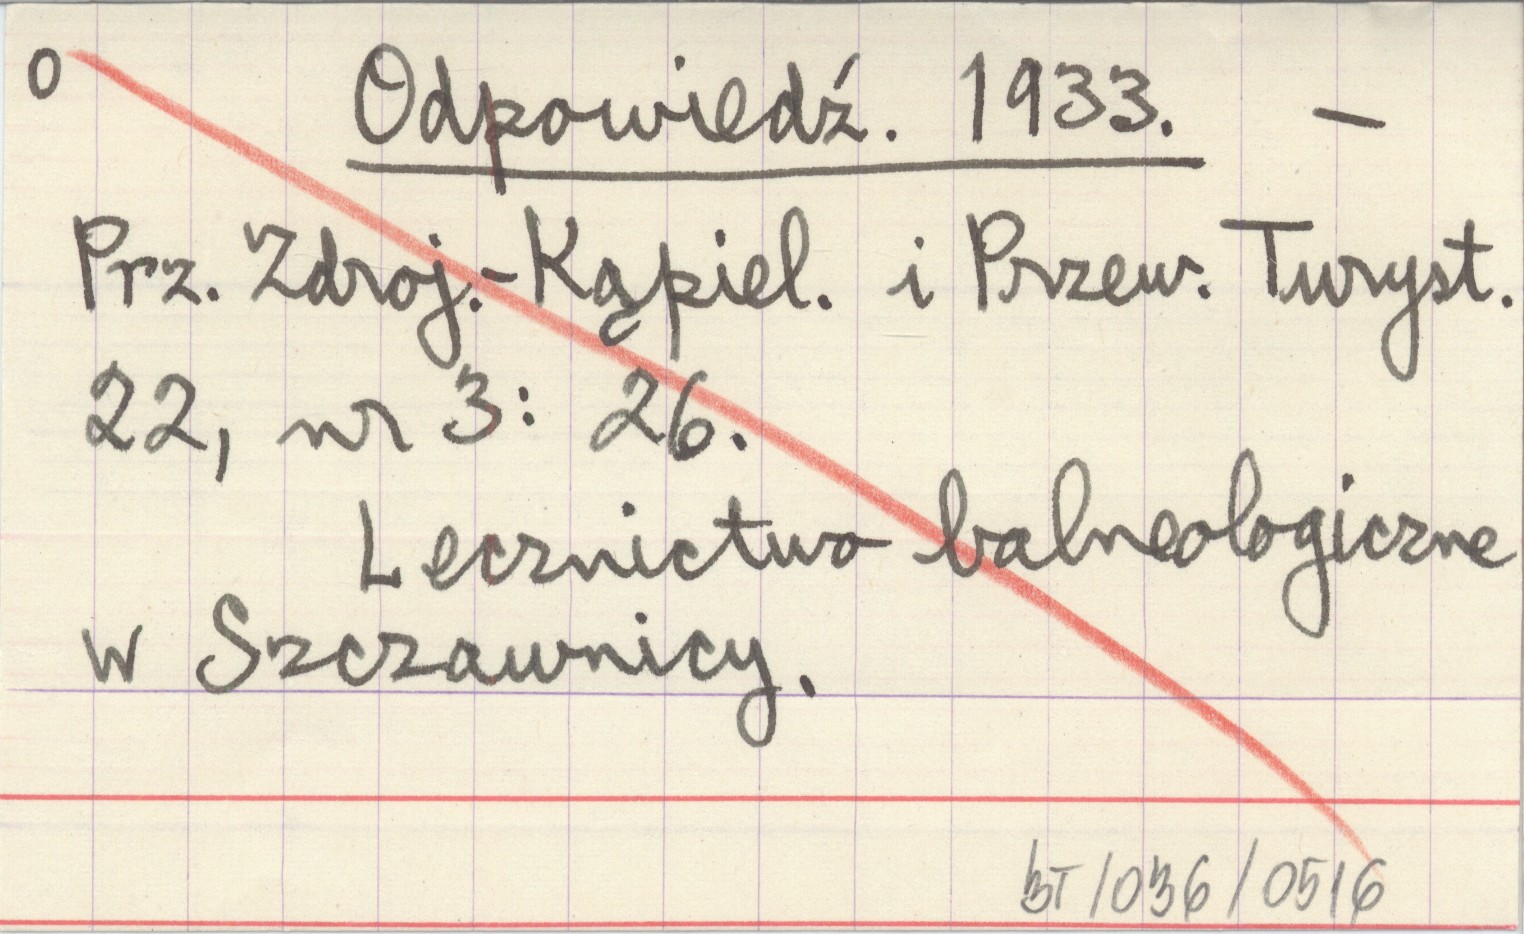 O Odpowiedź. 1933. –
Prz. Zdroj.-Kąpiel. i Przew. Turyst.
22, nr 3: 26.
Lecznictwo balneologiczne
w Szczawnicy.
BT/036/0516